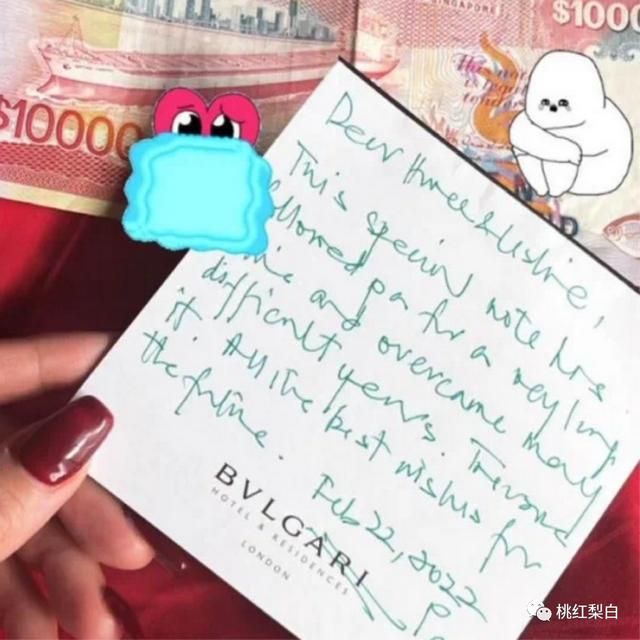 SINGAPORE
$1000
$10000
Dear
This special note has
for a very long
and overcame many
difficult years. Treasure
it. All the best wishes for
the future.
Feb 22, 2022
BVLGARI
HOTEL & RESIDENCES
LONDON
桃红梨白